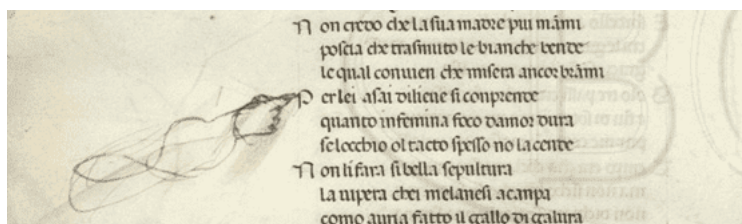 N on credo che la sua madre piu m ami
poscia che trasmuto le bianche bende
le qual convien che misera ancor brami
P er lei asai di lieve si conprende
quanto in femina foco d amor dura
se locchio ol tacto spesso no lacende
N on li fara si bella sepultura
la vipera chei melanesi acampa
como avria fatto il gallo di gallura